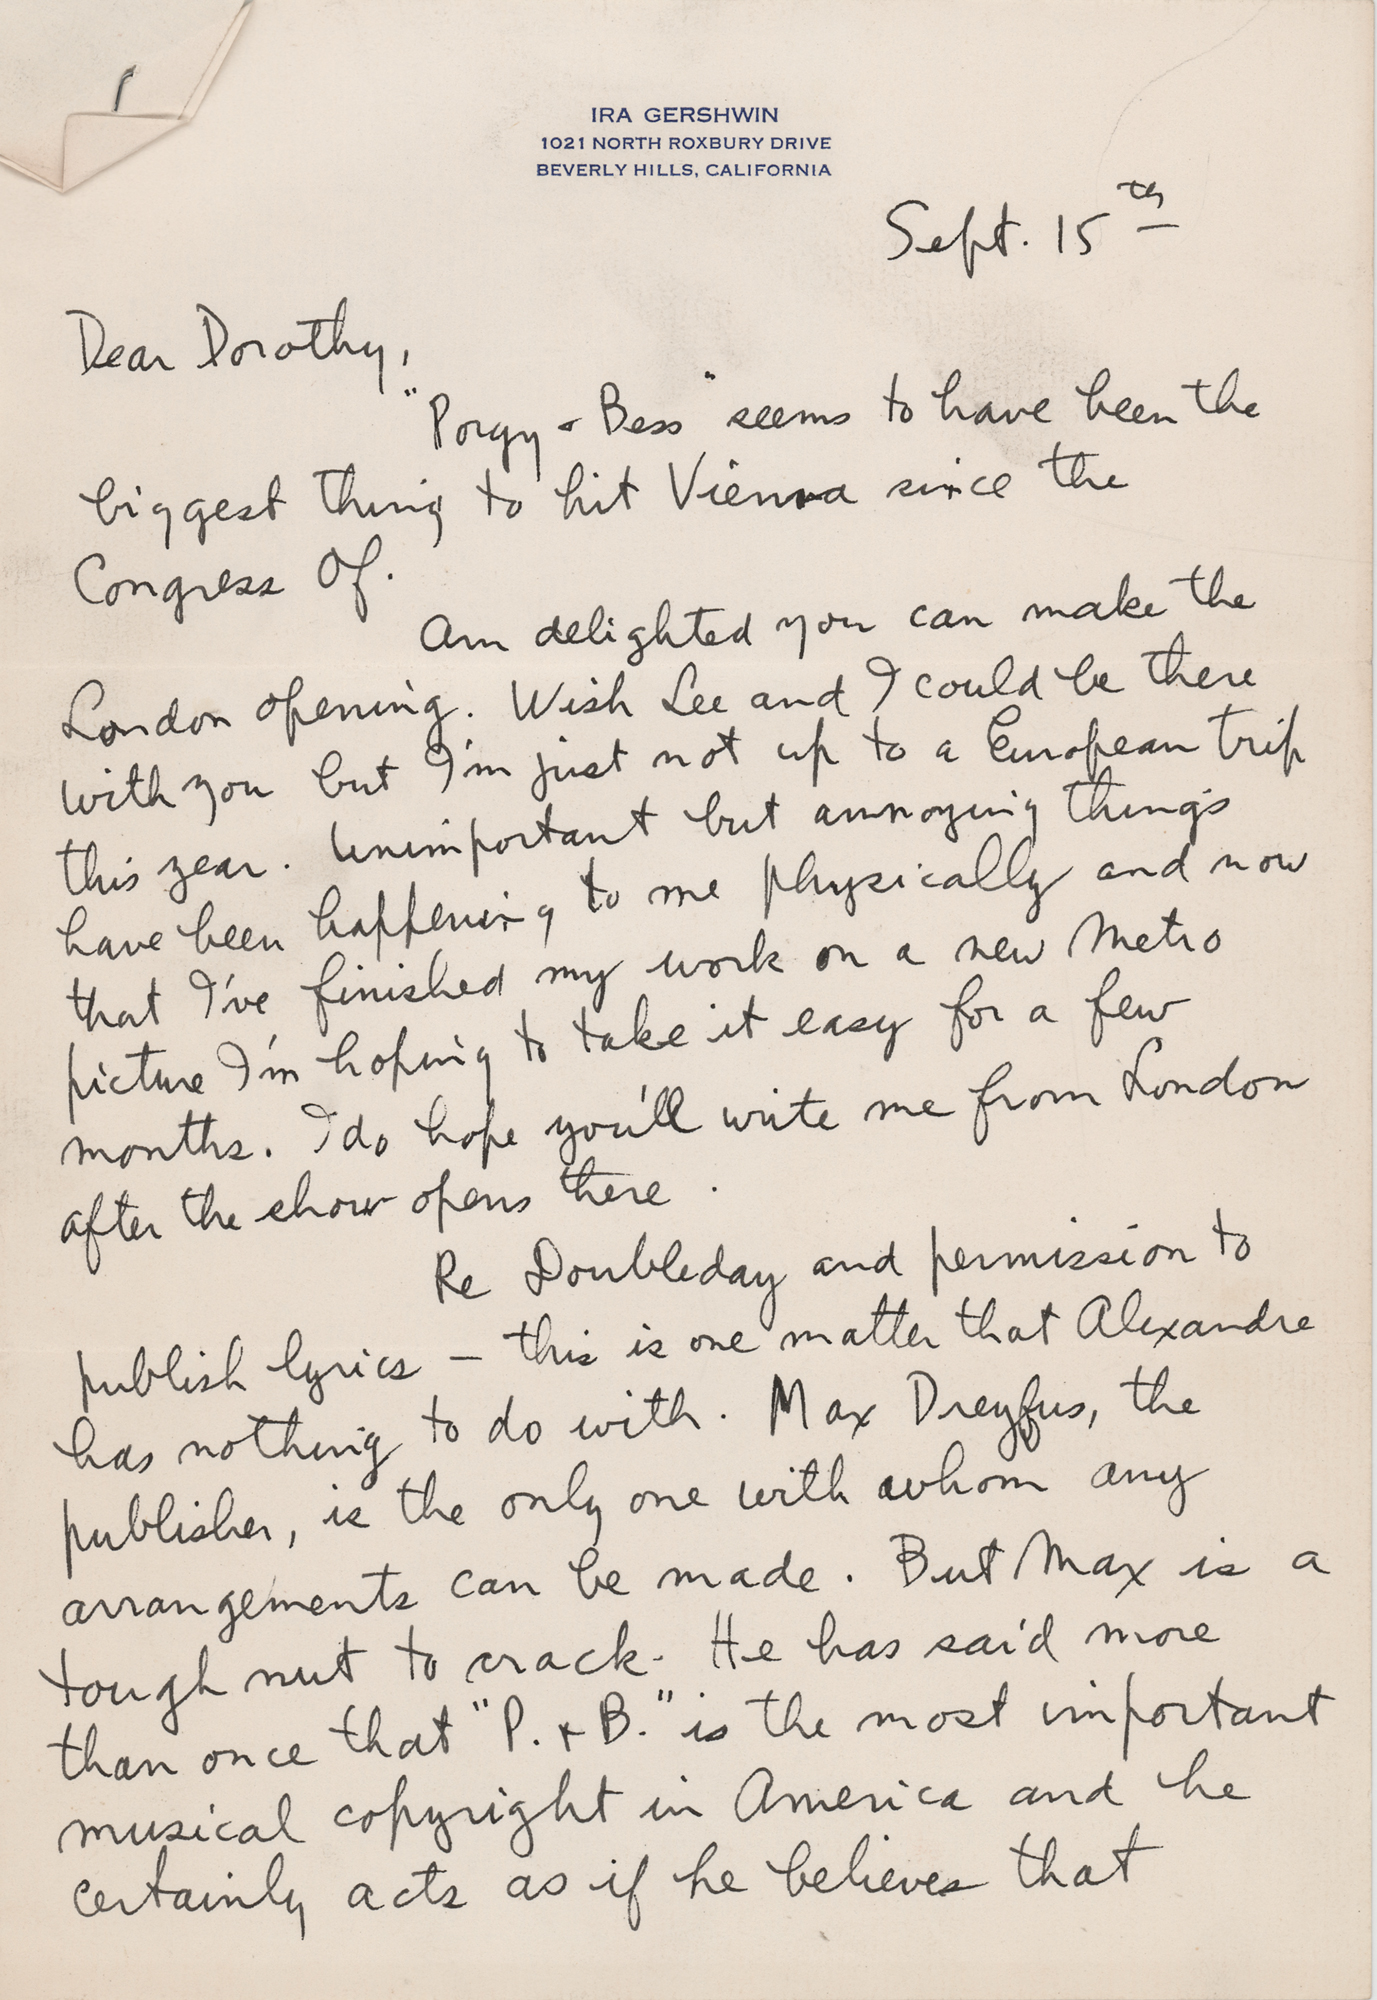 IRA GERSHWIN
1021 NORTH ROXBURY DRIVE
BEVERLY HILLS, CALIFORNIA
Sept. 15th
Dear Dorothy,
"Porgy & Bess" seems to have been the
biggest thing to hit Vienna since the
Congress Of.
Am delighted you can make the
London opening. Wish Lee and I could be there
with you but I'm just not up to a European trip
this year. Unimportant but annoying things
have been happening to me physically and now
that I've finished my work on a new Metro
picture I'm hoping to take it easy for a few
months. I do hope you'll write me from London
after the show opens there.
Re Doubleday and permission to
publish lyrics — this is one matter that Alexandre
has nothing to do with. Max Dreyfus, the
publisher, is the only one with whom any
arrangements can be made. But Max is a
tough nut to crack. He has said more
than once that "P. & B." is the most important
musical copyright in America and he
certainly acts as if he believes that